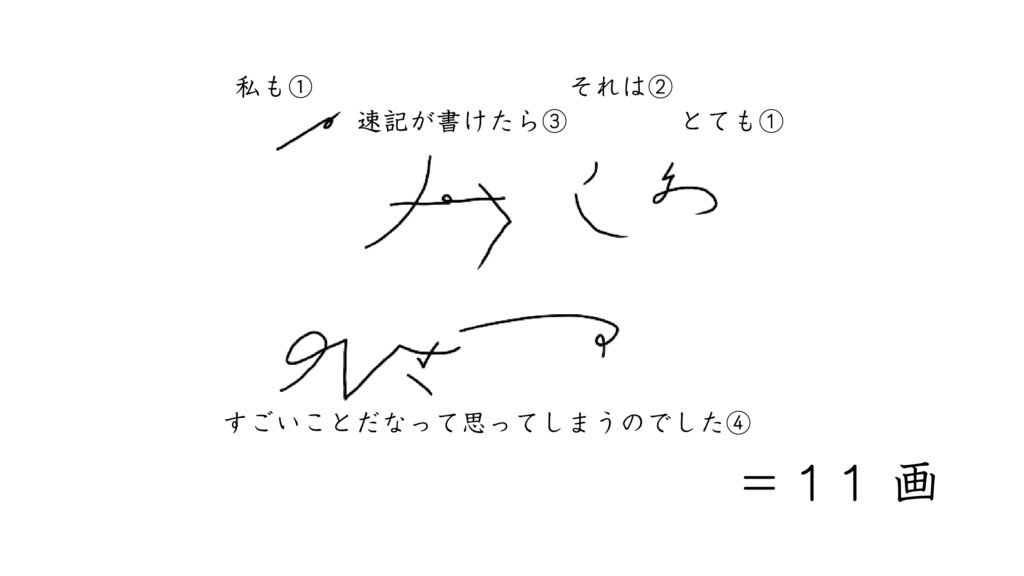 私も①
それは②
速記が書けたら③
とても①
すごいことだなって思ってしまうのでした④
＝１１画